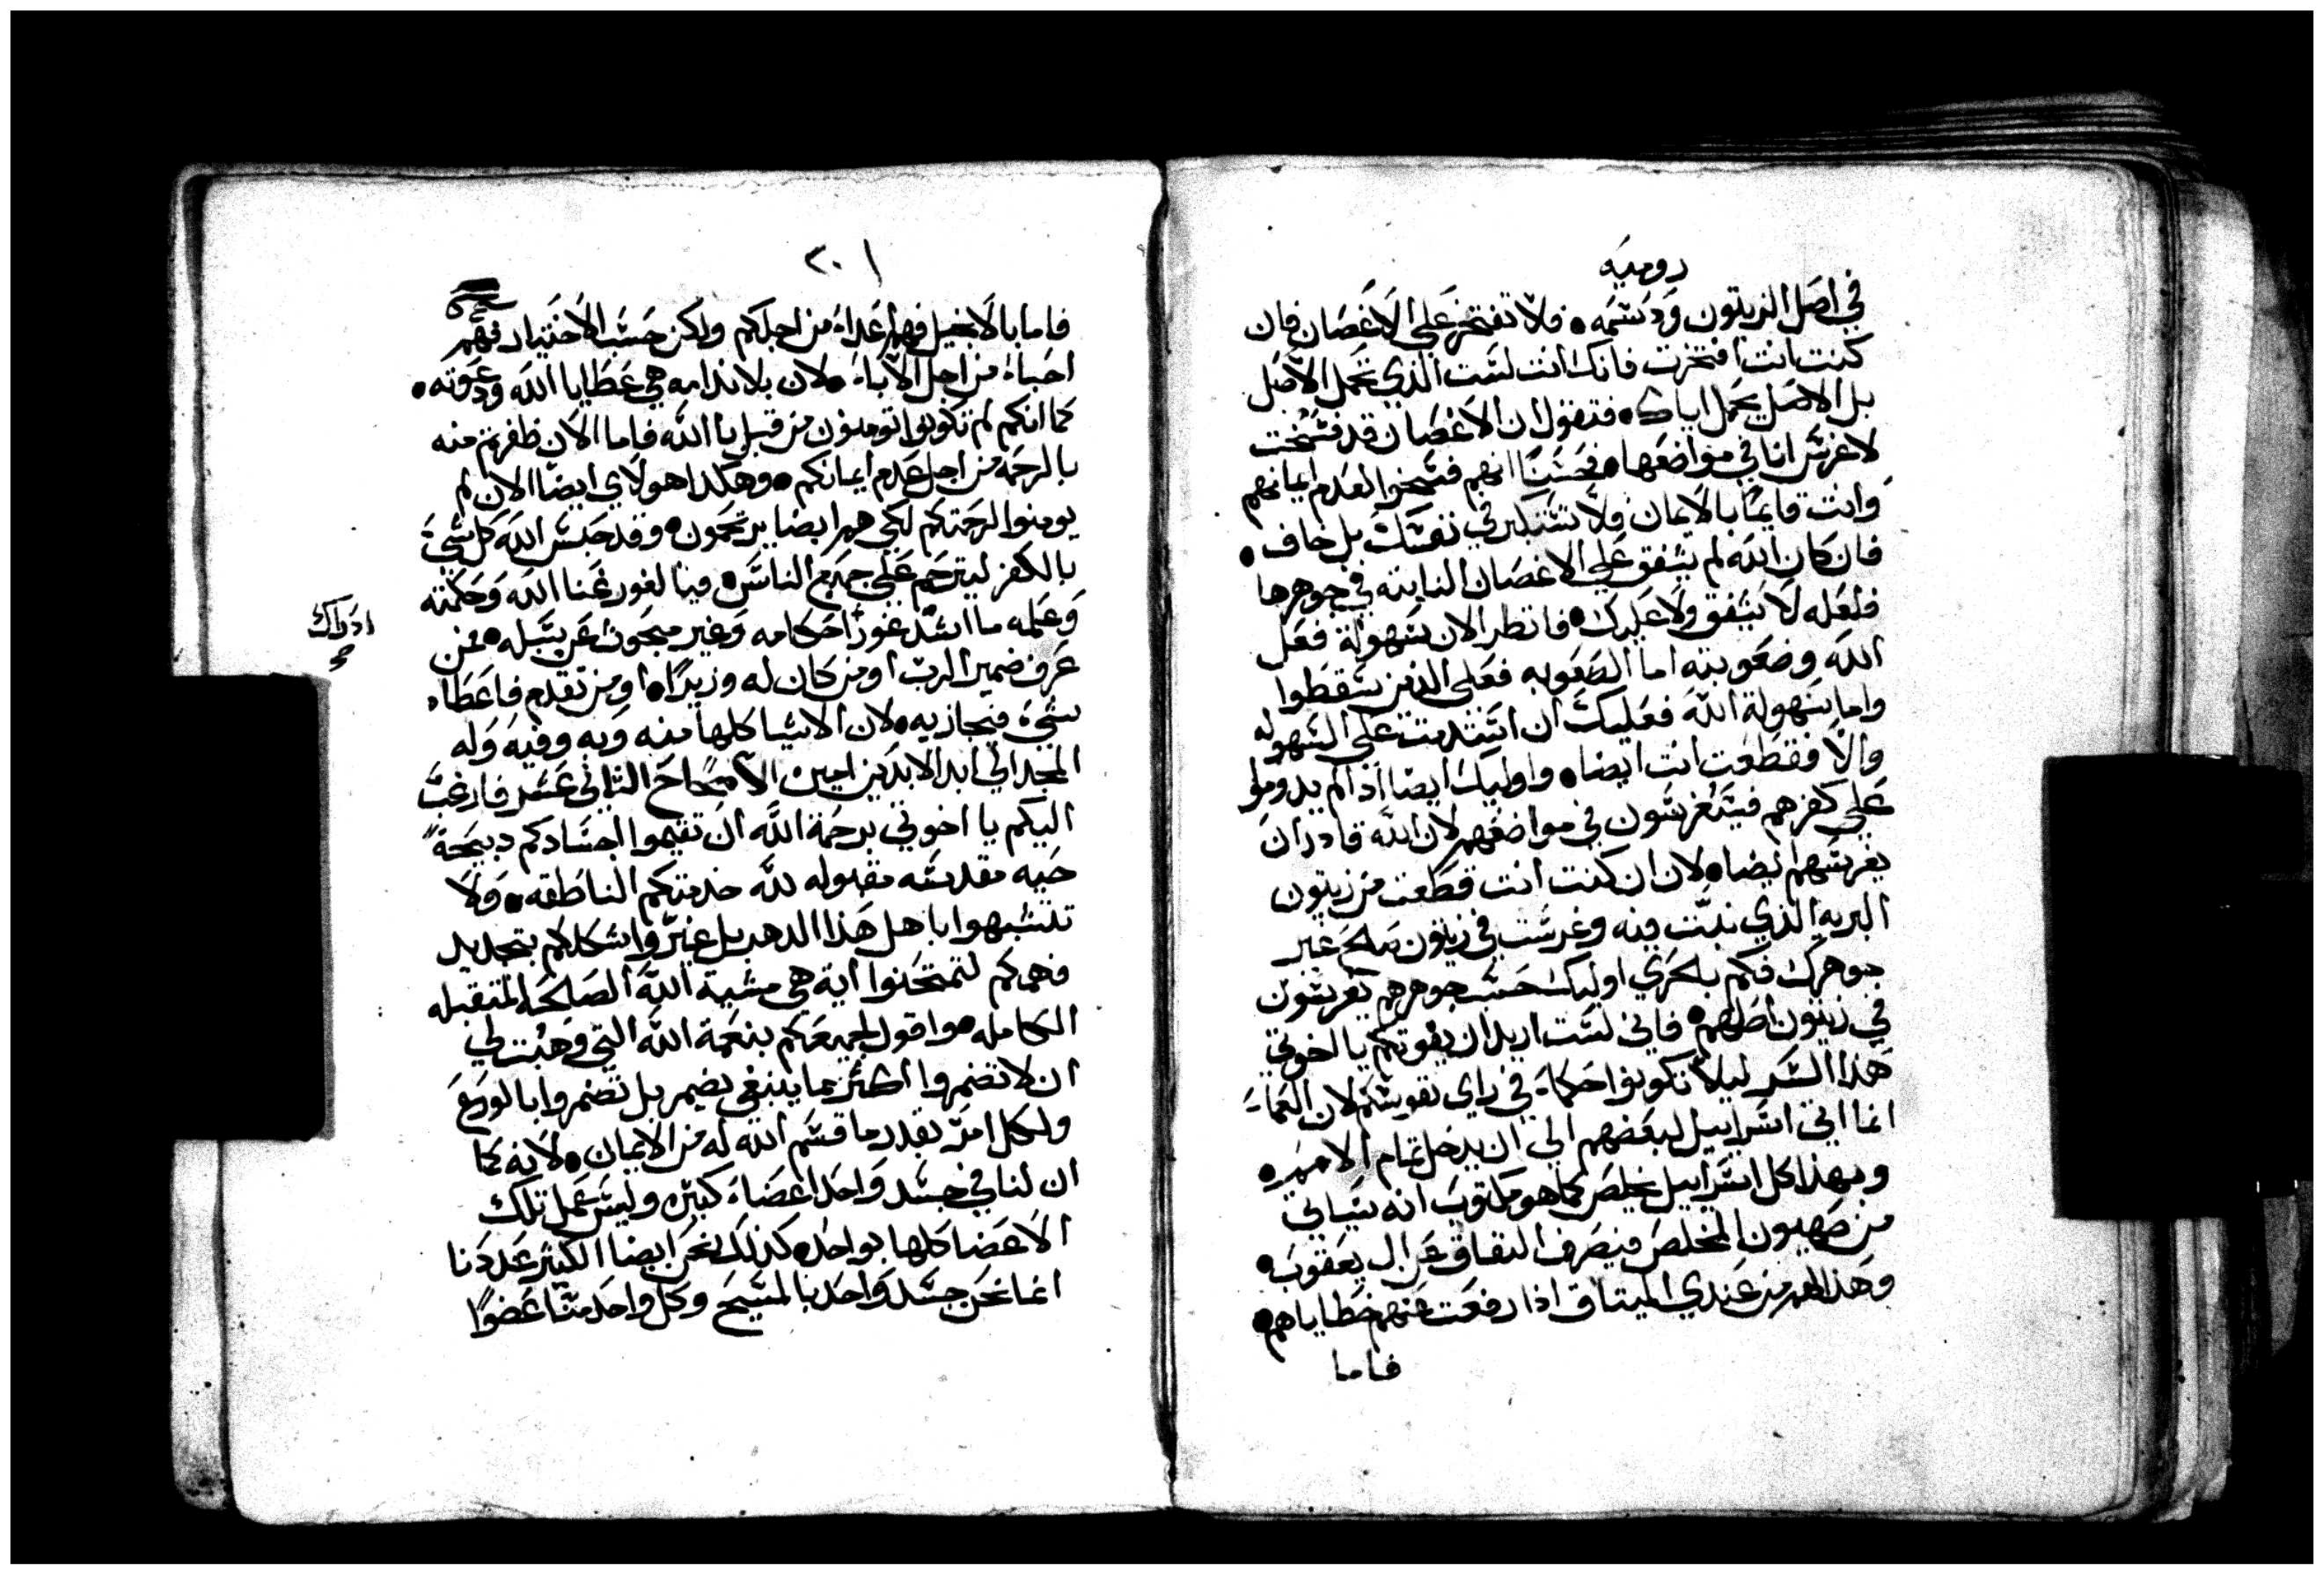 روميه
في اصل الزيتون ودسمه ٠ فلا تفتخر على الاغصان فان
كنت انت افتخرت فانك انت لست الذي تحمل الاصل
بل الاصل يحمل اياك ٠ فتقول ان الاغصان قد فسخت
لاغرس انا في مواضعها ٠ فحسنًا انهم فسخوا لعدم ايمانهم
وانت قايمًا بالايمان فلا تستكبر في نفسك بل خاف ٠
فان كان الله لم يشفق على الاغصان النابته في جوهرها
فلعله لا يشفق ولا عليك ٠ فانظر الان سهولة فعل
الله وصعوبته اما الصعوبه فعلى الذين سقطوا
واما سهولة الله فعليك ان استدمت على السهوله
والا فقطعت انت ايضا ٠ واوليك ايضا اذا لم يدوموا
على كفرهم فسيغرسون في مواضعهم لان الله قادر ان
يغرسهم ايضا ٠ لان ان كنت انت قطعت من زيتون
البريه الذي نبت فيه وغرست في زيتون صالح غير
جوهرك فكم بالحري اوليك حسب جوهرهم يغرسون
في زيتون اصلهم ٠ فاني لست اريد ان يفوتكم يا اخوتي
هذا السر ليلا تكونوا حكماء في راي نفوسكم لان العماء
انما اتى اسراييل لبعضهم الى ان يدخل تمام الامم ٠
وبهذا كل اسراييل يخلص كما هو مكتوب انه سياتي
من صهيون المخلص فيصرف النفاق عن ال يعقوب ٠
وهذا لهم من عندي الميتاق اذا رفعت عنهم خطاياهم ٠
فاما
٢٠١
فاما بالانجيل فهم اعداء من اجلكم ولكن حسب الاختيار فهم
احباء من اجل الاباء ٠ لان بلا ندامه هي عطايا الله ودعوته ٠
كما انكم لم تكونوا تومنون من قبل بالله فاما الان ظفرتم منه
بالرحمه من اجل عدم ايمانكم ٠ وهكذا هولاي ايضا الان لم
يومنوا لرحمتكم لكي هم ايضا يرتحمون ٠ وقد حبس الله كل شيء
بالكفر ليترحم على جميع الناس ٠ فيا لغور غنا الله وحكمته
وعلمه ما اشد غور احكامه وغير مبحوث عن سبله ٠ فمن
ادراك
عرف ضمير الرب او من كان له وزيرًا ٠ او من تقدم فاعطاه
شيء فيجازيه ٠ لان الاشيا كلها منه وبه وفيه وله
المجد الى ابد الابدين امين الاصحاح التاني عشر فارغب
اليكم يا اخوتي برحمة الله ان تقيموا اجسادكم دبيحةً
حيه مقدسه مقبوله لله خدمتكم الناطقه ٠ ولا
تتشبهوا باهل هذا الدهر بل غيروا اشكالكم بتجديد
فهمكم لتمتحنوا اية هي مشية الله الصالحه المتقبله
الكامله ٠ واقول لجميعكم بنعمة الله التي وهبت لي
ان لا تضمروا اكثر مما ينبغي يضمر بل تضمروا بالورع
ولكل امرّ بقدر ما قسم الله له من الايمان ٠ لانه كما
ان لنا في جسد واحد اعضاء كتيره وليس عمل تلك
الاعضا كلها بواحد ٠ كذلك نحن ايضا الكتير عددنا
انما نحن جسد واحد بالمسيح وكل واحد منا عضوًا